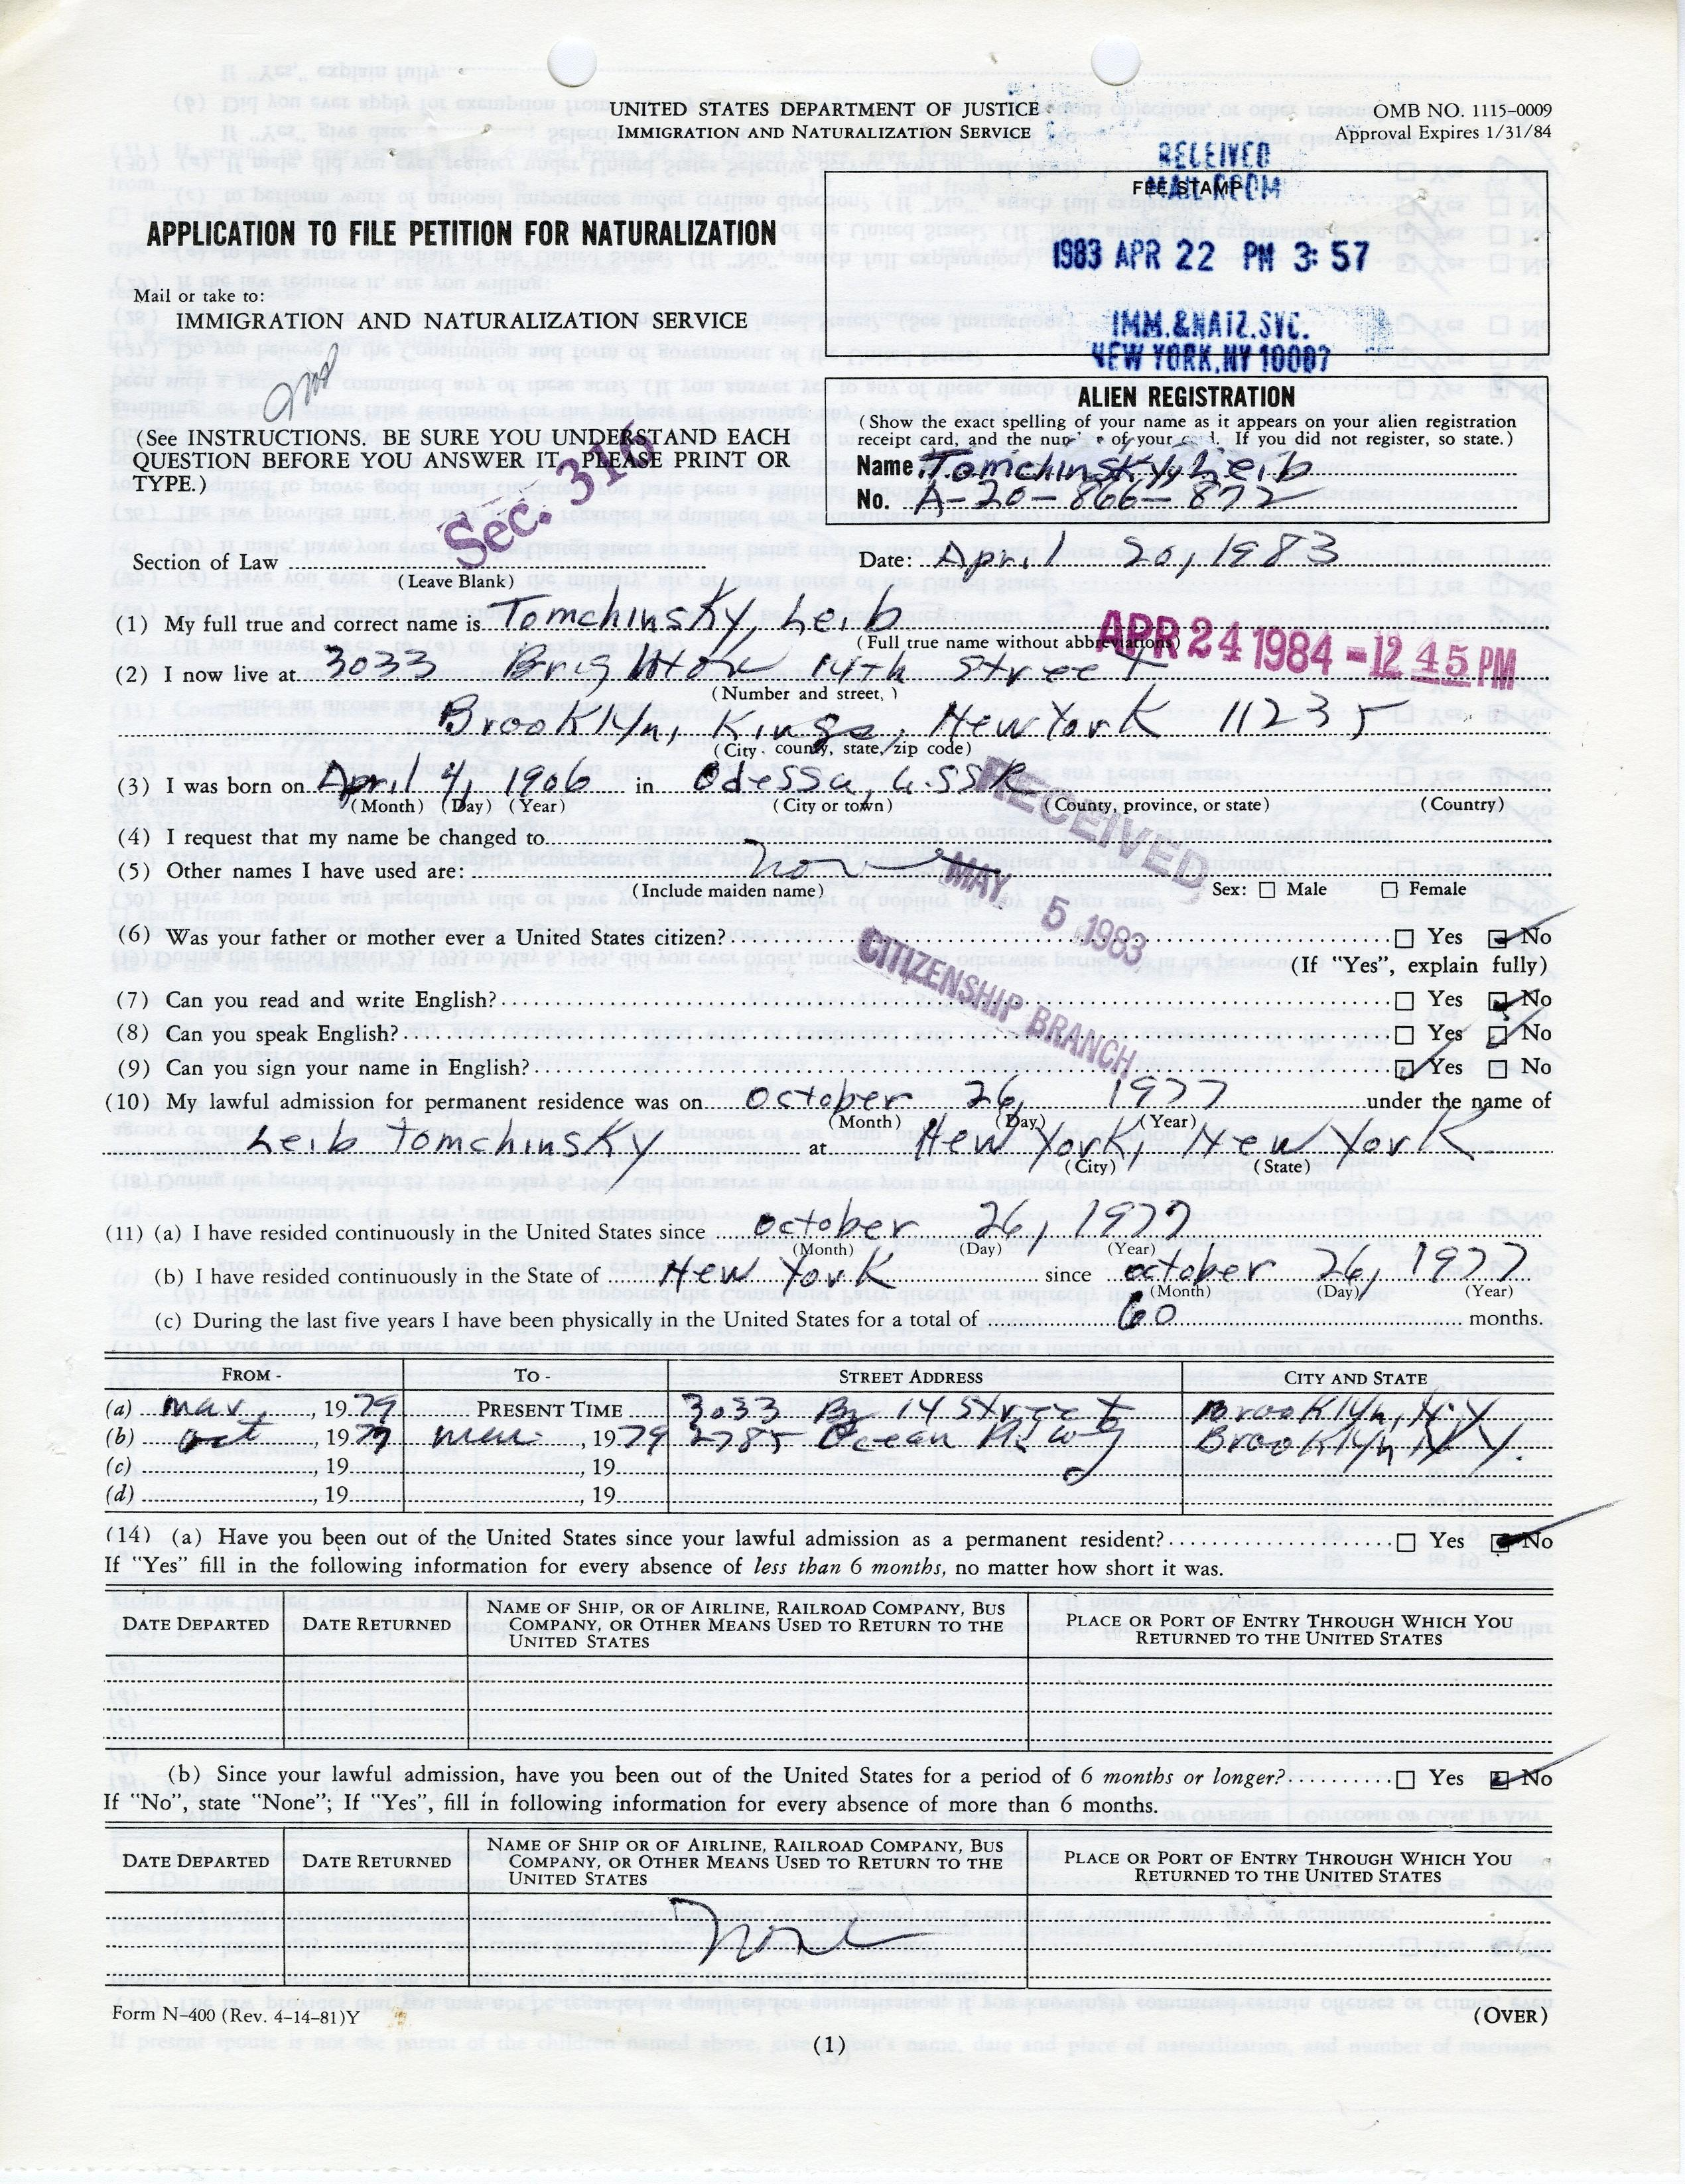 UNITED STATES DEPARTMENT OF JUSTICE
IMMIGRATION AND NATURALIZATION SERVICE
OMB NO. 1115-0009
Approval Expires 1/31/84
RECEIVED
MAIL ROOM
FEE STAMP
1983 APR 22 PM 3:57
IMM.&NATZ.SVC.
NEW YORK,NY 10007
APPLICATION TO FILE PETITION FOR NATURALIZATION
Mail or take to:
IMMIGRATION AND NATURALIZATION SERVICE
(See INSTRUCTIONS. BE SURE YOU UNDERSTAND EACH
QUESTION BEFORE YOU ANSWER IT. PLEASE PRINT OR
TYPE.)
Sec. 316
ALIEN REGISTRATION
(Show the exact spelling of your name as it appears on your alien registration
receipt card, and the number of your card. If you did not register, so state.)
Name Tomchinsky, Leib
No. A-20-866-872
Section of Law
(Leave Blank)
Date: April 20, 1983
(1) My full true and correct name is Tomchinsky, Leib
(Full true name without abbreviations)
APR 24 1984 -12 45 PM
(2) I now live at 3033 Brighton 14th Street
(Number and street, )
Brooklyn, Kings, New York 11235
(City, county, state, zip code)
(3) I was born on April 4, 1906 in Odessa, USSR
(Month) (Day) (Year) (City or town) (County, province, or state) (Country)
RECEIVED
MAY 5 1983
CITIZENSHIP BRANCH
(4) I request that my name be changed to
(5) Other names I have used are: none
(Include maiden name) Sex: ☐ Male ☐ Female
(6) Was your father or mother ever a United States citizen? Yes No
(If "Yes", explain fully)
(7) Can you read and write English? Yes No
(8) Can you speak English? Yes No
(9) Can you sign your name in English? Yes No
(10) My lawful admission for permanent residence was on October 26, 1977 under the name of
(Month) (Day) (Year)
Leib Tomchinsky at New York, New York
(City) (State)
(11) (a) I have resided continuously in the United States since October 26, 1977
(Month) (Day) (Year)
(b) I have resided continuously in the State of New York since October 26, 1977
(Month) (Day) (Year)
(c) During the last five years I have been physically in the United States for a total of 60 months.
FROM - TO - STREET ADDRESS CITY AND STATE
(a) mar, 1979 PRESENT TIME 3033 Br 14 Street Brooklyn, N.Y.
(b) oct, 1977 mar, 1979 2785 Ocean Pkwy Brooklyn N.Y.
(c) , 19 , 19
(d) , 19 , 19
(14) (a) Have you been out of the United States since your lawful admission as a permanent resident? Yes No
If "Yes" fill in the following information for every absence of less than 6 months, no matter how short it was.
DATE DEPARTED DATE RETURNED NAME OF SHIP, OR OF AIRLINE, RAILROAD COMPANY, BUS COMPANY, OR OTHER MEANS USED TO RETURN TO THE UNITED STATES PLACE OR PORT OF ENTRY THROUGH WHICH YOU RETURNED TO THE UNITED STATES
(b) Since your lawful admission, have you been out of the United States for a period of 6 months or longer? Yes No
If "No", state "None"; If "Yes", fill in following information for every absence of more than 6 months.
DATE DEPARTED DATE RETURNED NAME OF SHIP OR OF AIRLINE, RAILROAD COMPANY, BUS COMPANY, OR OTHER MEANS USED TO RETURN TO THE UNITED STATES PLACE OR PORT OF ENTRY THROUGH WHICH YOU RETURNED TO THE UNITED STATES
None
Form N-400 (Rev. 4-14-81)Y
(OVER)
(1)